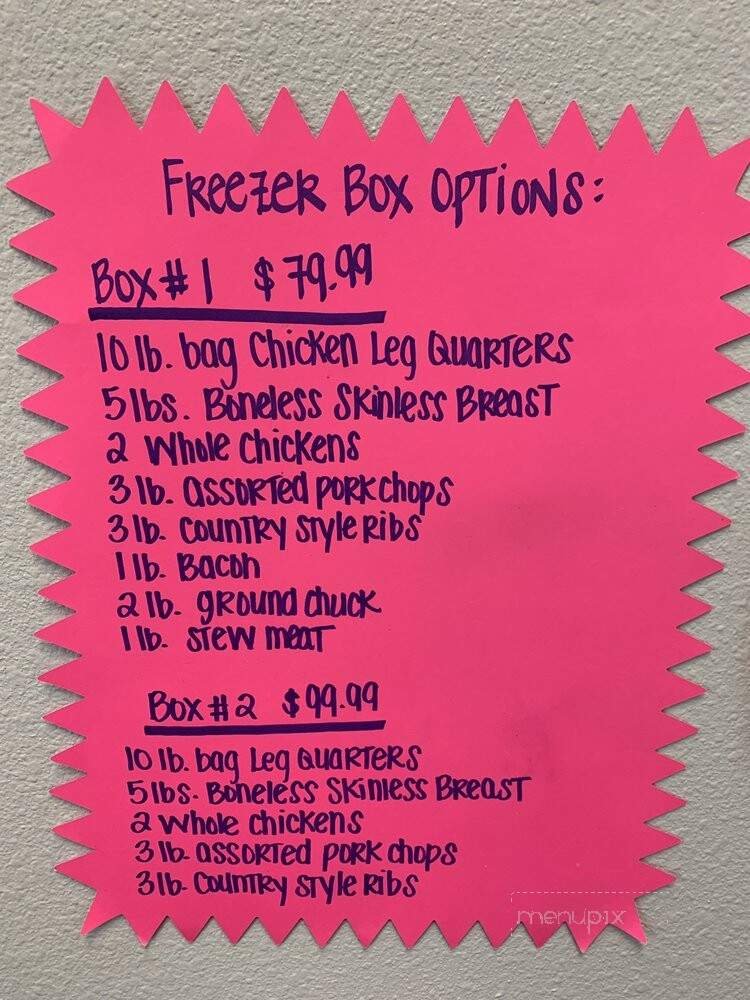 Freezer Box Options:
Box #1 $79.99
10 lb. bag Chicken Leg Quarters
5 lbs. Boneless Skinless Breast
2 Whole Chickens
3 lb. assorted pork chops
3 lb. Country Style Ribs
1 lb. Bacon
2 lb. ground chuck
1 lb. stew meat
Box #2 $99.99
10 lb. bag Leg Quarters
5 lbs. Boneless Skinless Breast
2 Whole Chickens
3 lb. assorted pork chops
3 lb. Country Style Ribs
menupix